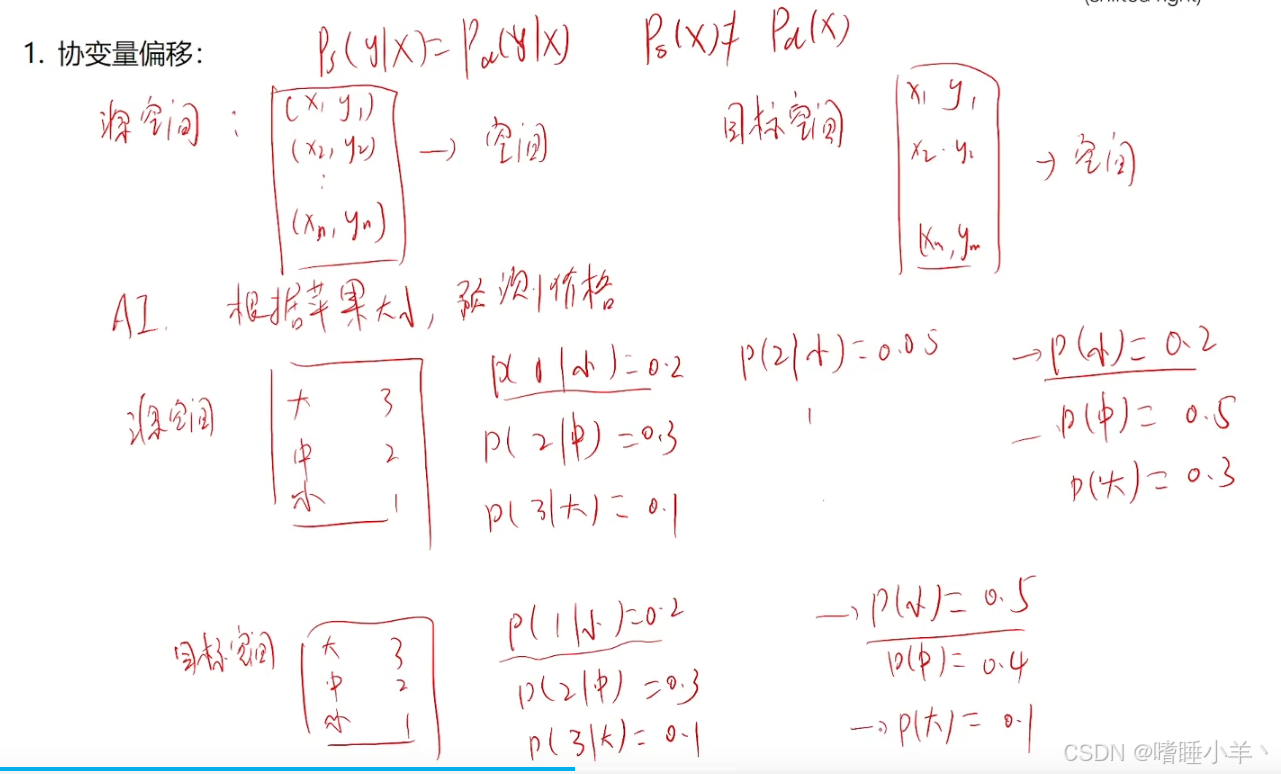 (shifted right)
1. 协变量偏移: Ps(y|X)=Pd(y|X) Ps(X)≠ Pd(X)
源空间: (x1 y1) 目标空间 x1 y1
(x2, y2) → 空间 x2 · y2 → 空间
⋮
(xn, yn) (xn, ym
AI. 根据苹果大小, 预测价格
源空间 大 3 P(1|小)=0.2 P(2|小)=0.05 → P(小)=0.2
中 2 P(2|中)=0.3 P(中)=0.5
小 1 P(3|大)=0.1 P(大)=0.3
目标空间 大 3 P(1|小)=0.2 → P(小)=0.5
中 2 P(2|中)=0.3 P(中)=0.4
小 1 P(3|大)=0.1 → P(大)=0.1
CSDN @嗜睡小羊丶